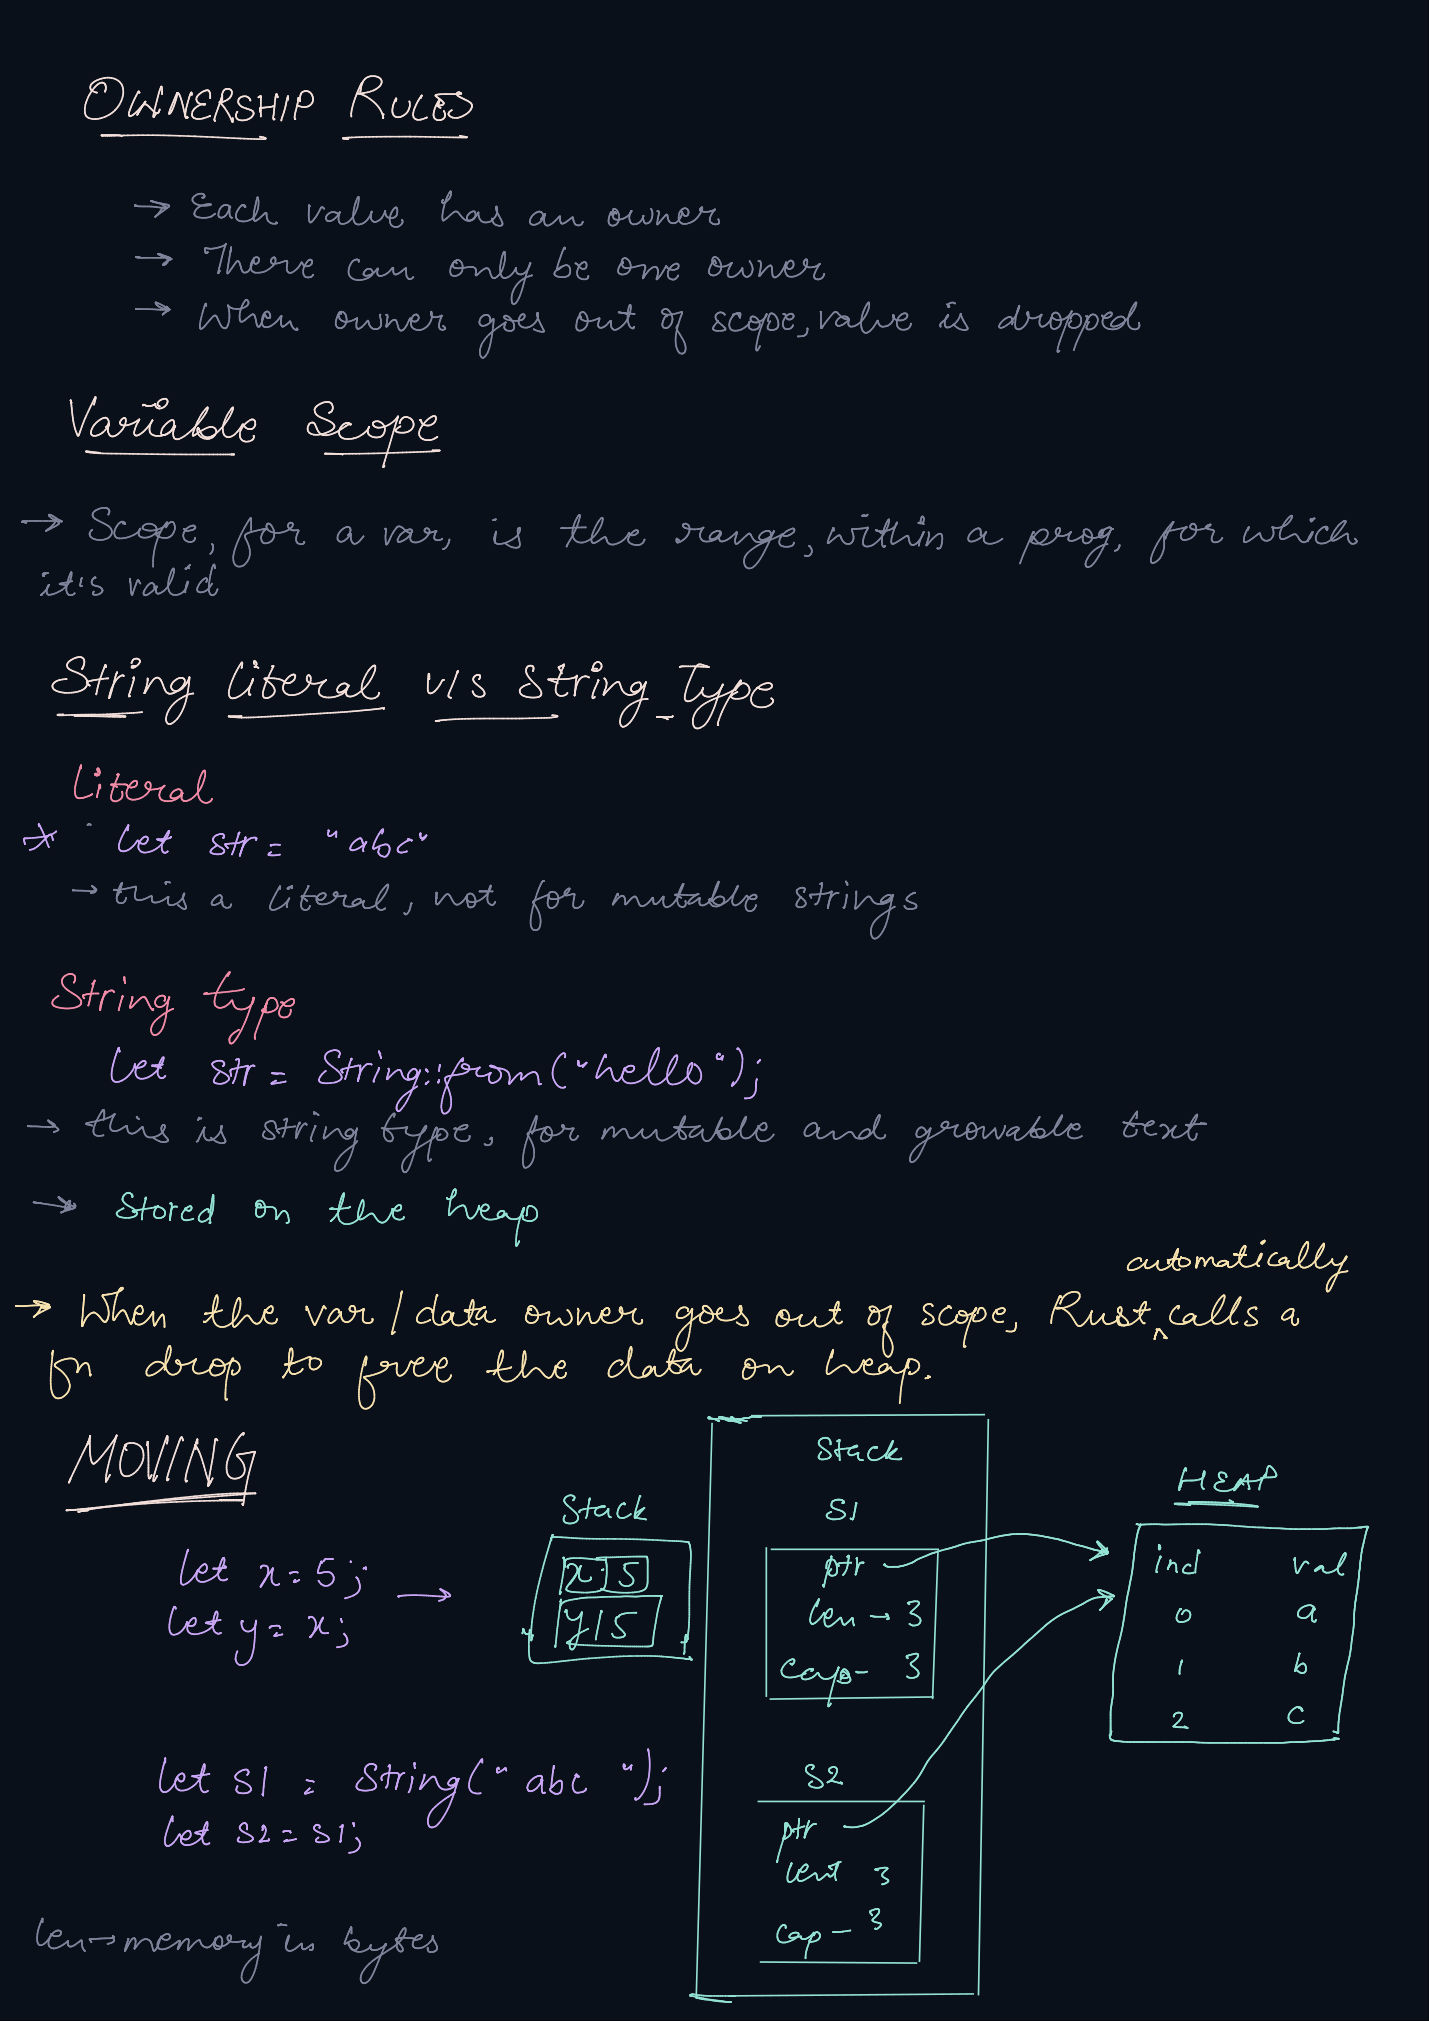 OWNERSHIP RULES
→ Each value has an owner
→ There can only be one owner
→ When owner goes out of scope, value is dropped
Variable Scope
→ Scope, for a var, is the range, within a prog, for which
it's valid
String literal v/s String Type
Literal
* let str = "abc"
→ this a literal, not for mutable strings
String type
let str = String::from("hello");
→ this is string type, for mutable and growable text
→ Stored on the heap
automatically
→ When the var / data owner goes out of scope, Rust ^ calls a
fn drop to free the data on heap.
MOVING
Stack
HEAP
Stack
S1
let x = 5;
let y = x;
→
x 5
y 5
ptr
len → 3
cap - 3
ind val
0 a
1 b
2 c
let s1 = String("abc");
let s2 = s1;
S2
ptr
len 3
cap - 3
len → memory in bytes